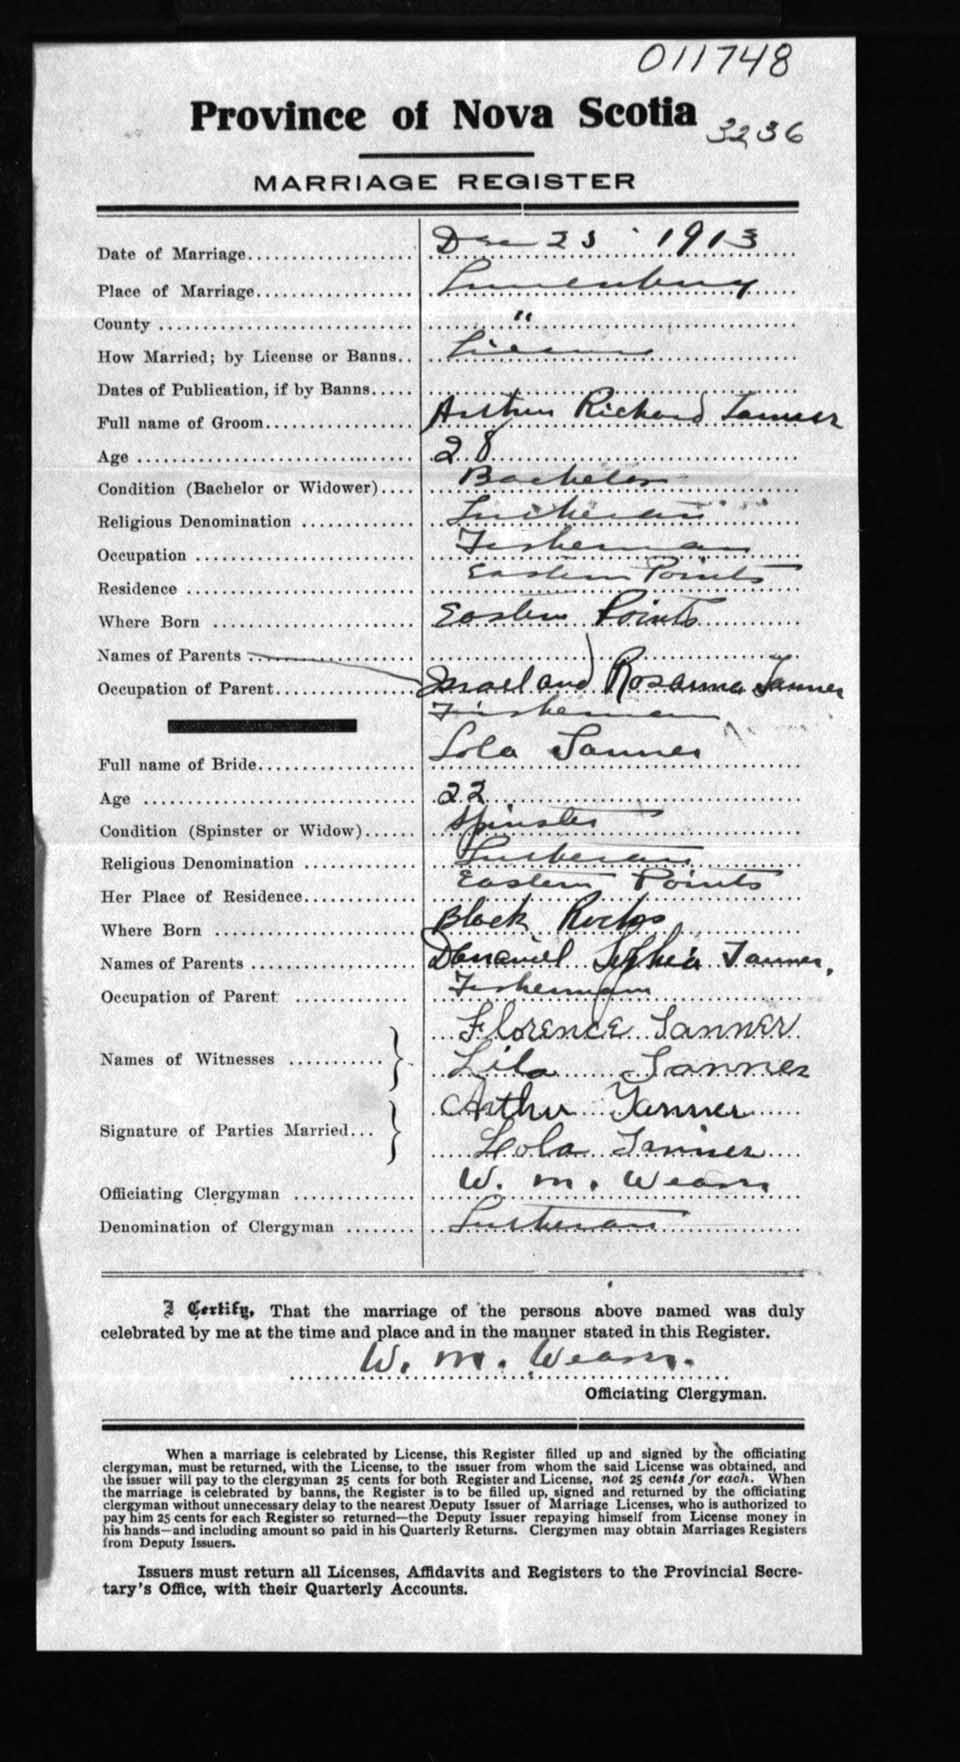 011748
Province of Nova Scotia
3236
MARRIAGE REGISTER
Date of Marriage Dec 23 1913
Place of Marriage Lunenburg
County "
How Married; by License or Banns License
Dates of Publication, if by Banns
Full name of Groom Arthur Richard Tanner
Age 28
Condition (Bachelor or Widower) Bachelor
Religious Denomination Lutheran
Occupation Fisherman
Residence Eastern Points
Where Born Eastern Points
Names of Parents
Occupation of Parent Israel and Rosanna Tanner
Fisherman
Full name of Bride Lola Tanner
Age 22
Condition (Spinster or Widow) Spinster
Religious Denomination Lutheran
Her Place of Residence Eastern Points
Where Born Black Rocks
Names of Parents Sophia Tanner,
Occupation of Parent Fisherman
Florence Tanner
Names of Witnesses
Lila Tanner
Arthur Tanner
Signature of Parties Married
Lola Tanner
Officiating Clergyman W. M.
Denomination of Clergyman Lutheran
I Certify, That the marriage of the persons above named was duly
celebrated by me at the time and place and in the manner stated in this Register.
W. M.
Officiating Clergyman.
When a marriage is celebrated by License, this Register filled up and signed by the officiating
clergyman, must be returned, with the License, to the issuer from whom the said License was obtained, and
the issuer will pay to the clergyman 25 cents for both Register and License, not 25 cents for each. When
the marriage is celebrated by banns, the Register is to be filled up, signed and returned by the officiating
clergyman without unnecessary delay to the nearest Deputy Issuer of Marriage Licenses, who is authorized to
pay him 25 cents for each Register so returned—the Deputy Issuer repaying himself from License money in
his hands—and including amount so paid in his Quarterly Returns. Clergymen may obtain Marriages Registers
from Deputy Issuers.
Issuers must return all Licenses, Affidavits and Registers to the Provincial Secre-
tary's Office, with their Quarterly Accounts.